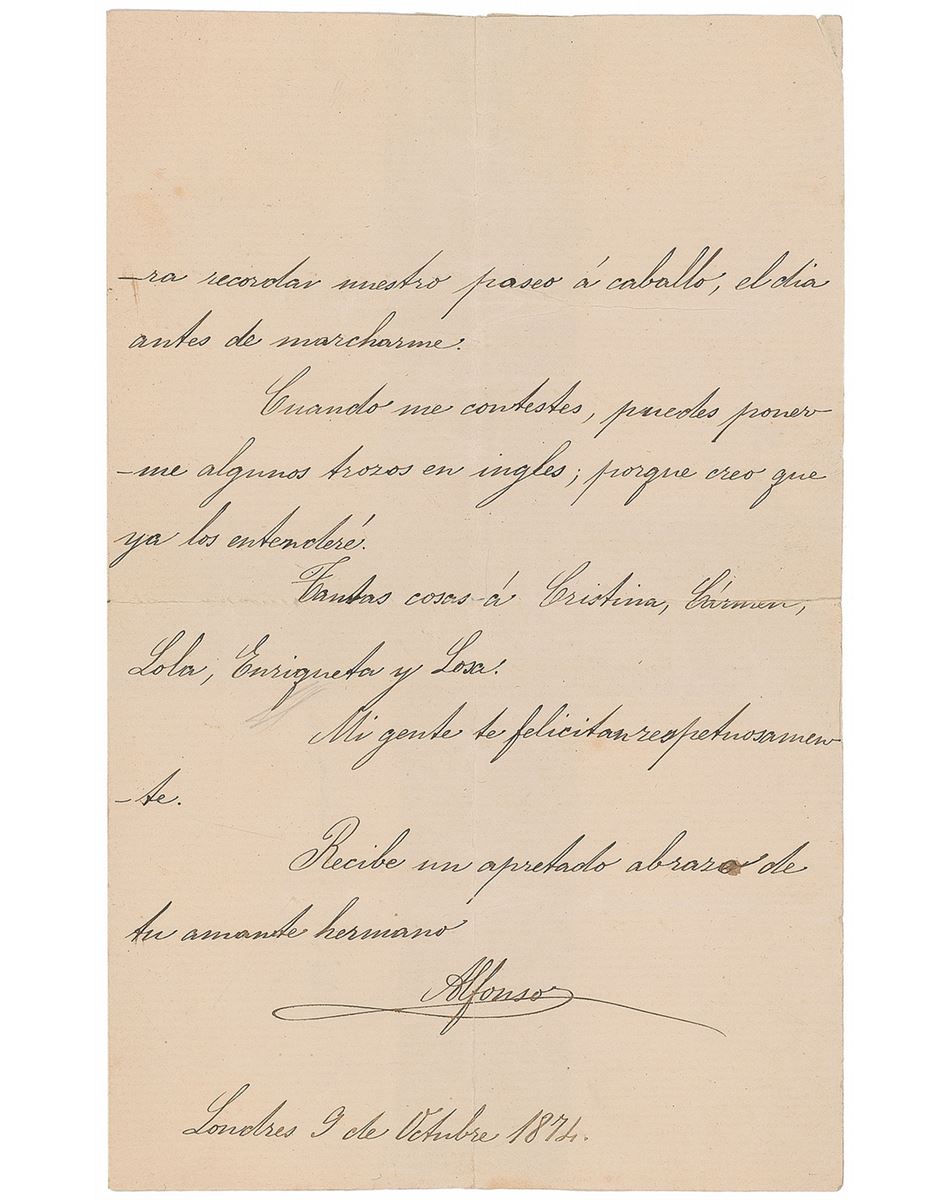 -ra recordar nuestro paseo á caballo, el dia
antes de marcharme.
Cuando me contestes, puedes poner
-me algunos trozos en ingles; porque creo que
ya los entenderé.
Tantas cosas á Cristina, Cármen,
Lola, Enriqueta y Losa.
Mi gente te felicitan respetuosamen
-te.
Recibe un apretado abrazo de
tu amante hermano
Alfonso
Londres 9 de Octubre 1874.